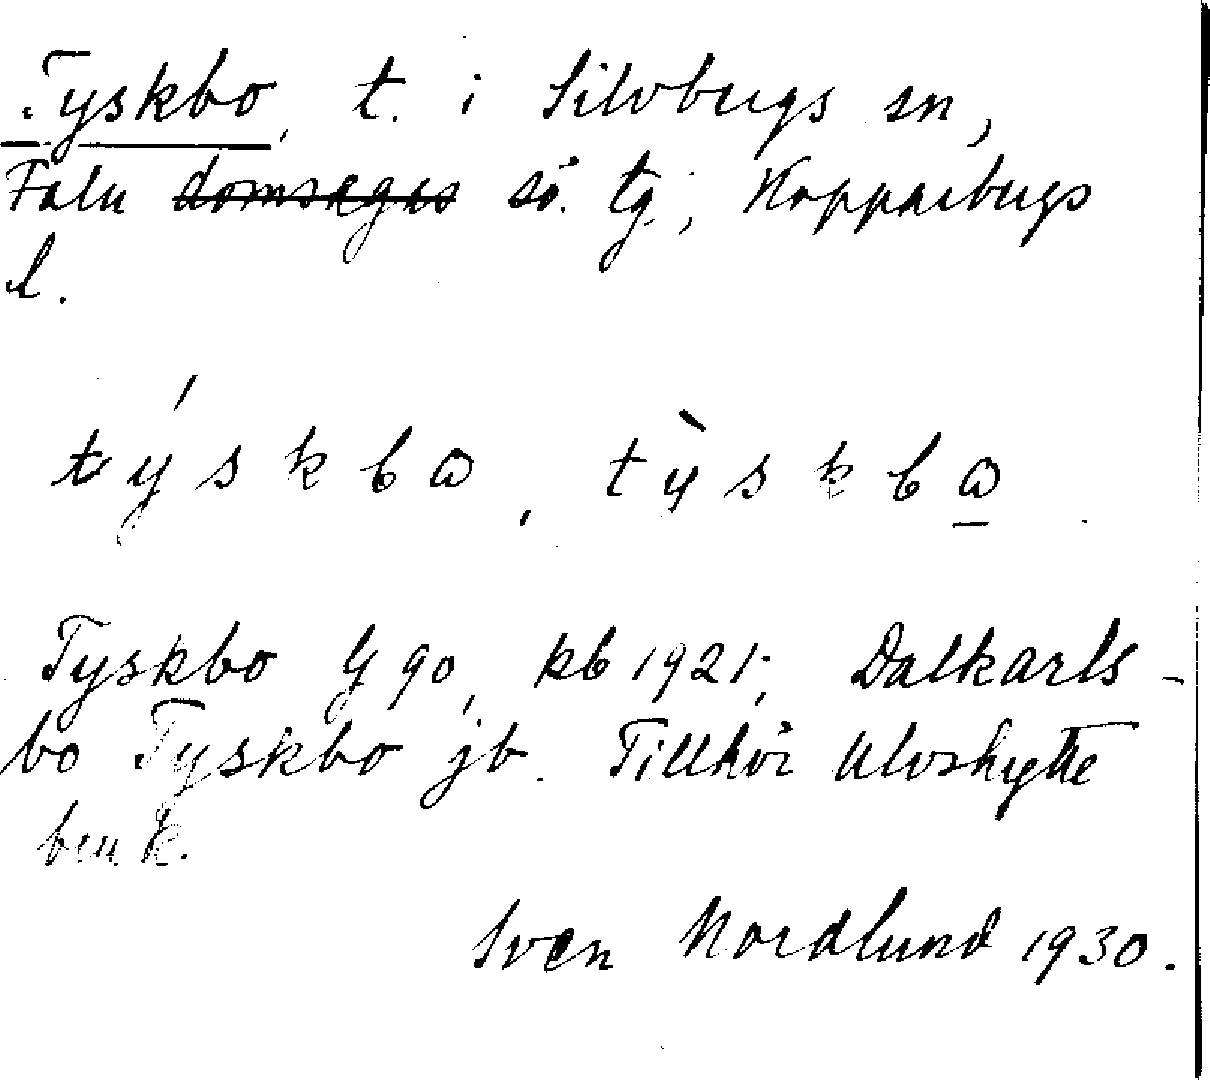 Tyskbo, t. i Silvbergs sn,
Falu domsagas sö. tg., Kopparbergs
l.
týskbω, tỳskbω̲
Tyskbo G 90, kb 1921; Dalkarls-
bo Tyskbo jb. Tillhör Ulvshytte
bruk.
Sven Nordlund 1930.